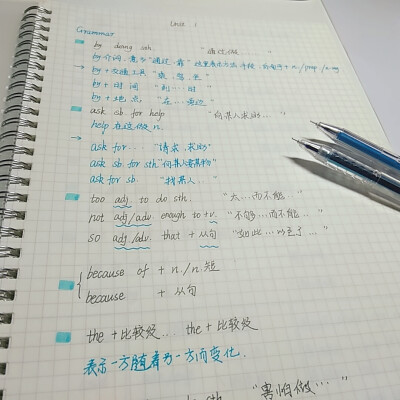 Unit 1
Grammar
by doing sth "通过做…"
by 介词, 意为"通过,靠" 这里表示方法,手段, 后面可+n./prep./v-ing
→ by+交通工具 "乘,驾,坐"
by+时间 "到…时"
by+地点 "在…旁边"
ask sb for help "向某人求助…"
help 在这做n.
→ ask for… "请求,求助"
ask sb. for sth "向某人要某物"
ask for sb "找某人…"
too adj. to do sth. "太…而不能…"
not adj/adv enough to+v. "不够…而不能…"
so adj/adv. that +从句 "如此…以至于…"
because of + n./n.短
because + 从句
the +比较级… the +比较级
表示一方随着另一方而变化.
sth "害怕做…"